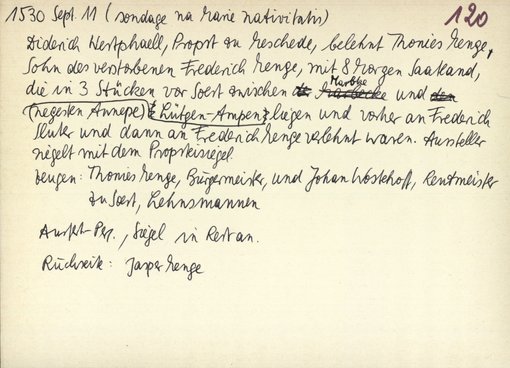 1530 Sept. 11 (sondage na Marie nativitatis) 120
Diderich Westphaell, Propst zu Meschede, belehnt Thonies Menge,
Sohn des verstorbenen Frederich Menge, mit 8 Morgen Saatland,
die in 3 Stücken vor Soest zwischen Marbke und
(negesten Annepe) [Lütgen-Ampen] liegen und vorher an Frederich
Sluter und dann an Frederich Menge verlehnt waren. Aussteller
siegelt mit dem Propsteisiegel.
Zeugen: Thonies Menge, Bürgermeister, und Johan Wostehoff, Rentmeister
zu Soest, Lehnsmannen
Ausf.-Per., Siegel in Rest an.
Rückseite: Jasper Menge